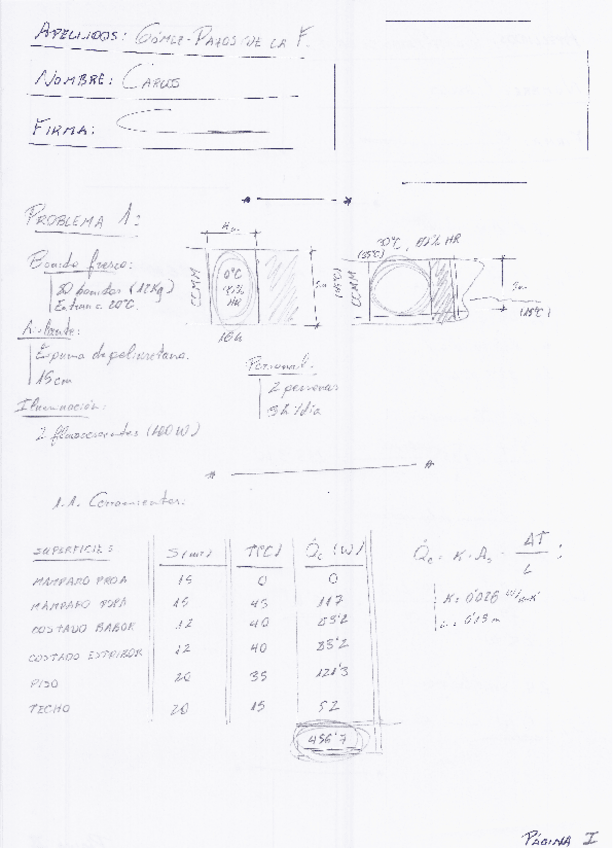 APELLIDOS: GÓMEZ-PAZOS DE LA F.
NOMBRE: CARLOS
FIRMA:
PROBLEMA 1:
Bonito fresco:
30 bonitos (12Kg)
Entran a 20ºC.
Aislante:
Espuma de poliuretano.
15cm
Iluminación:
2 fluorescentes (100W)
4m.
CCMM
0ºC
HR
16h
Personal:
2 personas
/día
30ºC, HR
(35ºC)
CCMM
(45ºC)
1.1. Cerramientos:
SUPERFICIES S(m²) T(ºC) Q̇c (W)
MAMPARO PROA 15 0 0
MAMPARO POPA 15 45 117
COSTADO BABOR 12 40 83'2
COSTADO ESTRIBOR 12 40 83'2
PISO 20 35 121'3
TECHO 20 15 52
456'7
Q̇c = K · As · ΔT / L ;
K = 0'026 W/mK
L = 0'15 m
PÁGINA I